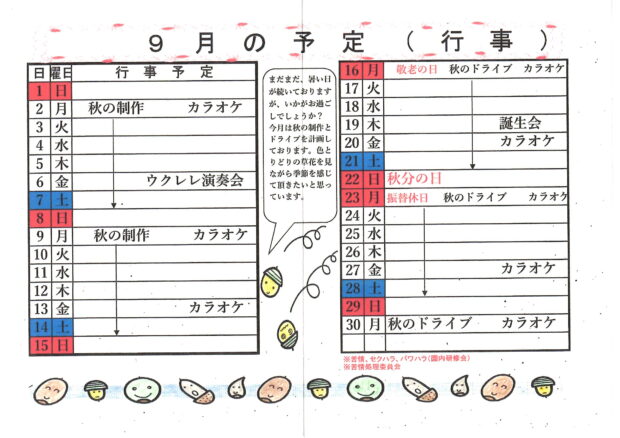 ９月の予定（行事）
日 曜日 行事予定
1 日
2 月 秋の制作 カラオケ
3 火
4 水
5 木
6 金 ウクレレ演奏会
7 土
8 日
9 月 秋の制作 カラオケ
10 火
11 水
12 木
13 金 カラオケ
14 土
15 日
まだまだ、暑い日
が続いております
が、いかがお過ご
しでしょうか？
今月は秋の制作と
ドライブを計画し
ております。色と
りどりの草花を見
ながら季節を感じ
て頂きたいと思っ
ています。
16 月 敬老の日 秋のドライブ カラオケ
17 火
18 水
19 木 誕生会
20 金 カラオケ
21 土
22 日 秋分の日
23 月 振替休日 秋のドライブ カラオケ
24 火
25 水
26 木
27 金 カラオケ
28 土
29 日
30 月 秋のドライブ カラオケ
※苦情、セクハラ、パワハラ(園内研修会)
※苦情処理委員会